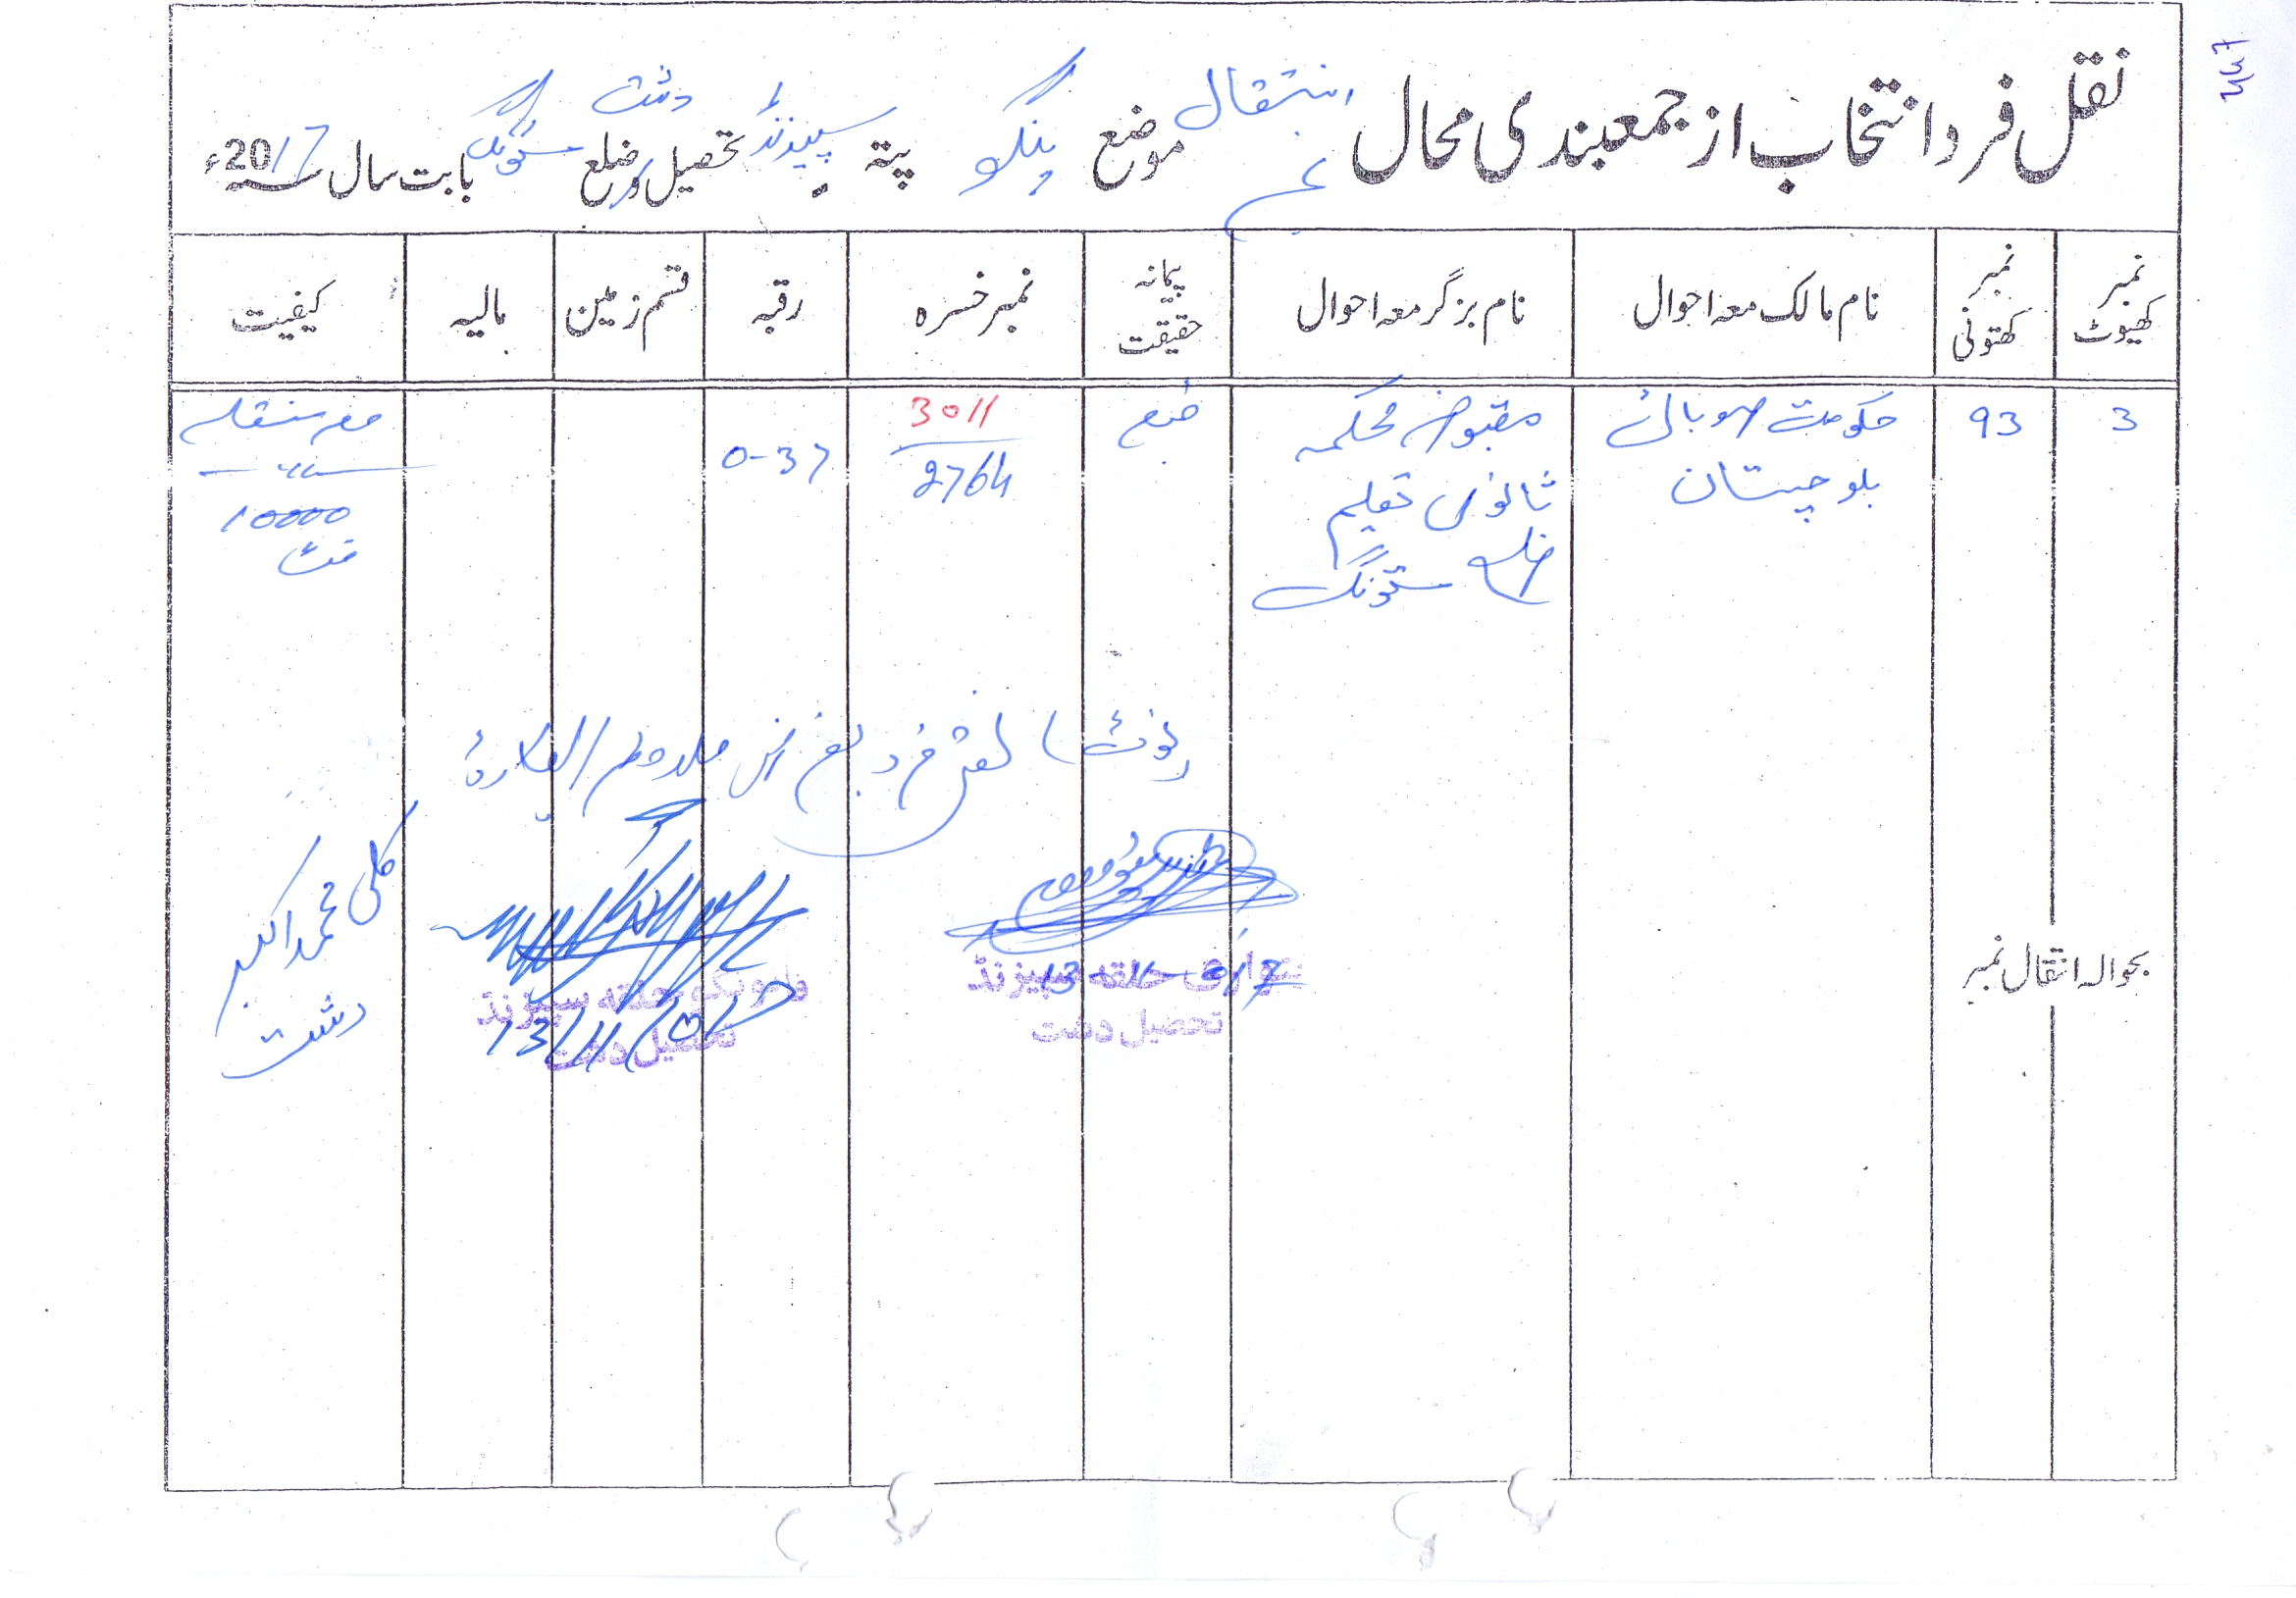 نقل فرد انتخاب از جمعبندی محال انتقال موضع ینگو پتہ سپیزنڈ تحصیل و ضلع دشت مستونگ بابت سال سنہ 2017ء
نمبر کھیوٹ
نمبر کھتونی
نام مالک معہ احوال
نام بزگر معہ احوال
پیمانہ حقیقت
نمبر خسرہ
رقبہ
قسم زمین
مالیہ
کیفیت
3
93
حکومت صوبائی
بلوچستان
مقبوضہ محکمہ
ثانوی تعلیم
ضلع مستونگ
3011
2764
0-37
10000
فٹ
نوٹ نقل فرد بغرض
کلی محمد اکبر
دشت
پٹواری حلقہ سپیزنڈ
تحصیل دشت
حلقہ سپیزنڈ
تحصیل دشت
بحوالہ انتقال نمبر